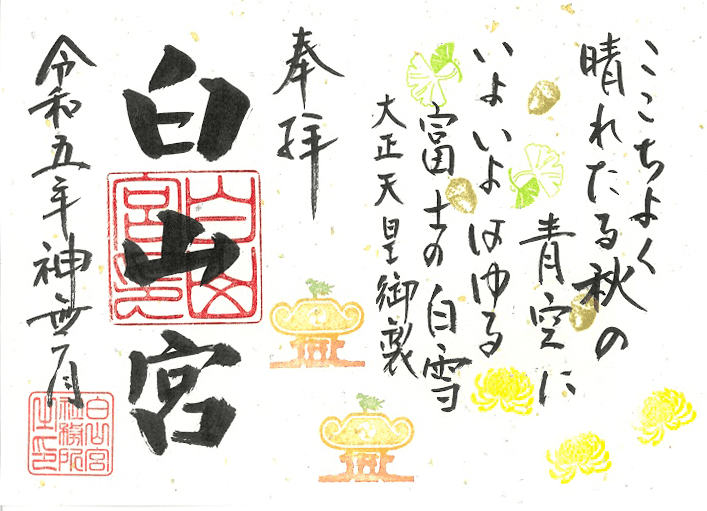 ここちよく
晴れたる秋の
青空に
いよいよはゆる
富士の白雪
大正天皇御製
奉拝
白山宮
白山宮印
令和五年神無月
白山宮社務所之印